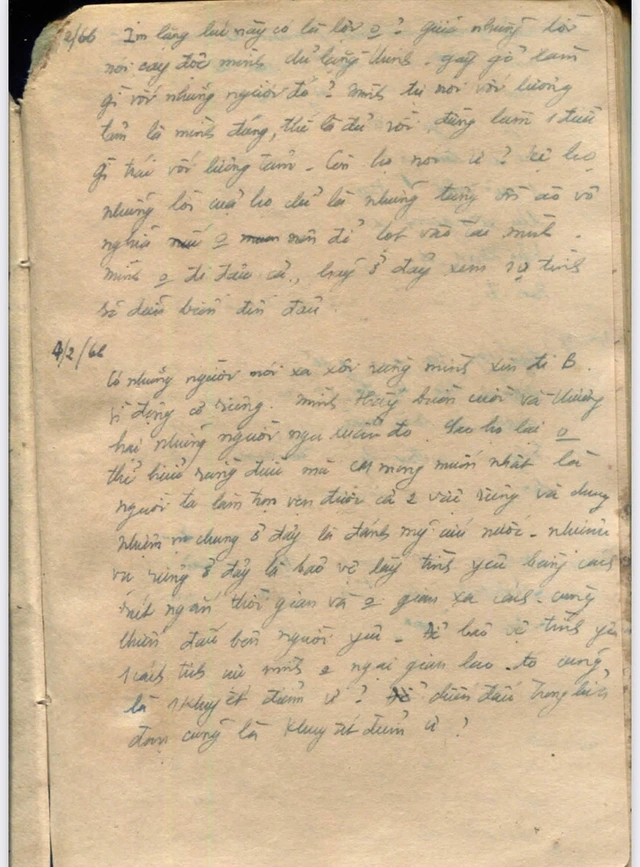 2/66 Im lặng lúc này có là lời o? giữa những lời
nói cay độc mình cứ lặng thinh. gây gổ làm
gì với những người đó? Mình tự nói với lương
tâm là mình đúng, thế là đủ rồi, đừng làm 1 điều
gì trái với lương tâm. Còn họ nói ư? kệ họ
những lời của họ chỉ là những tiếng vô
nghĩa o nên để lọt vào tai mình.
mình o đi đâu cả, hãy ở đấy xem sự tình
sẽ diễn biến đến đâu
4/2/66
Có những người nói xa xôi rằng mình xin đi B.
vì động cơ riêng. Mình thấy buồn cười và thương
hại những người ngu xuẩn đó. Sao họ lại o
thể hiểu rằng điều mà CM mong muốn nhất là
người ta làm trọn vẹn được cả 2 việc riêng và chung
nhiệm vụ chung ở đây là đánh mỹ cứu nước. nhiệm
vụ riêng ở đây là bảo vệ lấy tình yêu bằng cách
rút ngắn thời gian và o gian xa cách. cùng
chiến đấu bên người yêu. Để bảo vệ tình yêu
1 cách tích cực mình o ngại gian lao. đó cũng
là 1 khuyết điểm ư? chiến đấu trong
cũng là khuyết điểm ư?